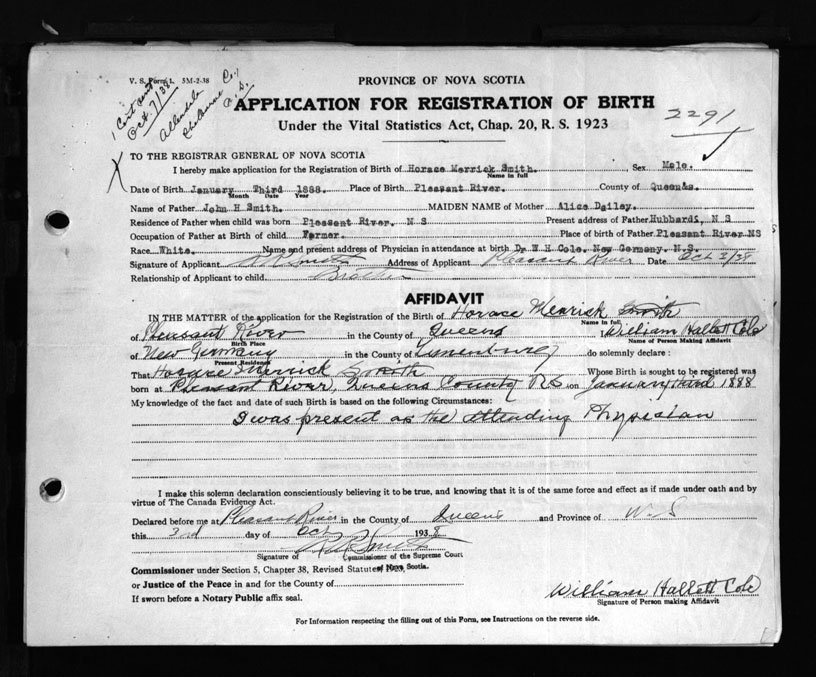 V. S. Form 1. 5M-2-38
1 Cert sent
Oct. 7/38
Allendale
Shelburne Co.,
N.S.
PROVINCE OF NOVA SCOTIA
APPLICATION FOR REGISTRATION OF BIRTH
Under the Vital Statistics Act, Chap. 20, R. S. 1923
2291
TO THE REGISTRAR GENERAL OF NOVA SCOTIA
I hereby make application for the Registration of Birth of Horace Merrick Smith. Sex Male.
Name in full
Date of Birth January Third 1888. Place of Birth Pleasant River. County of Queens.
Month Date Year
Name of Father John H Smith. MAIDEN NAME of Mother Alice Dailey.
Residence of Father when child was born Pleasant River. N S Present address of Father Hubbards, N S
Occupation of Father at Birth of child Farmer. Place of birth of Father Pleasant River NS
Race White. Name and present address of Physician in attendance at birth Dr W H Cole. New Germany. N.S.
Signature of Applicant Smith Address of Applicant Pleasant River Date Oct 3/38
Relationship of Applicant to child Brother
AFFIDAVIT
IN THE MATTER of the application for the Registration of the Birth of Horace Merrick Smith
Name in full
of Pleasant River in the County of Queens I William Hallett Cole
Birth Place Name of Person Making Affidavit
of New Germany in the County of Lunenburg do solemnly declare :
Present Residence
That Horace Merrick Smith Whose Birth is sought to be registered was
born at Pleasant River, Queens County NS on January third 1888
My knowledge of the fact and date of such Birth is based on the following Circumstances:
I was present as the attending Physician
I make this solemn declaration conscientiously believing it to be true, and knowing that it is of the same force and effect as if made under oath and by
virtue of The Canada Evidence Act.
Declared before me at Pleasant River in the County of Queens and Province of N.S
this 3rd day of Oct 1938
Smith
Signature of Commissioner of the Supreme Court
of Nova Scotia.
Commissioner under Section 5, Chapter 38, Revised Statutes 1923,
or Justice of the Peace in and for the County of
If sworn before a Notary Public affix seal.
William Hallett Cole
Signature of Person making Affidavit
For Information respecting the filling out of this Form, see Instructions on the reverse side.